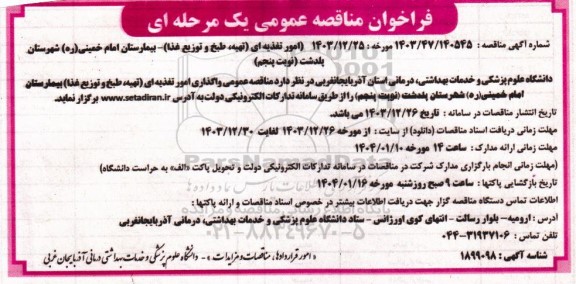 فراخوان مناقصه عمومی یک مرحله ای
شماره آگهی مناقصه : ۱۴۰۳/۴۷/۱۴۰۵۴۵ مورخه : ۱۴۰۳/۱۲/۲۵ (امور تغذیه ای (تهیه، طبخ و توزیع غذا)- بیمارستان امام خمینی(ره) شهرستان
پلدشت (نوبت پنجم)
دانشگاه علوم پزشکی و خدمات بهداشتی، درمانی استان آذربایجانغربی در نظر دارد مناقصه عمومی واگذاری امور تغذیه ای (تهیه، طبخ و توزیع غذا) بیمارستان
امام خمینی(ره) شهرستان پلدشت (نوبت پنجم) را از طریق سامانه تدارکات الکترونیکی دولت به آدرس www.setadiran.ir برگزار نماید.
تاریخ انتشار مناقصات در سامانه : تاریخ ۱۴۰۳/۱۲/۲۶ می باشد.
مهلت زمانی دریافت اسناد مناقصات (دانلود) از سایت : از مورخه ۱۴۰۳/۱۲/۲۶ لغایت ۱۴۰۳/۱۲/۳۰
مهلت زمانی ارائه مدارک : ساعت ۱۴ مورخه ۱۴۰۴/۰۱/۱۰
(مهلت زمانی انجام بارگزاری مدارک شرکت در مناقصات در سامانه تدارکات الکترونیکی دولت و تحویل پاکت «الف» به حراست دانشگاه)
تاریخ بازگشایی پاکتها : ساعت ۹ صبح روز شنبه مورخه ۱۴۰۴/۰۱/۱۶
اطلاعات تماس دستگاه مناقصه گزار جهت دریافت اطلاعات بیشتر در خصوص اسناد مناقصات و ارائه پاکتها :
آدرس : ارومیه - بلوار رسالت - انتهای کوی اورژانس - ستاد دانشگاه علوم پزشکی و خدمات بهداشتی، درمانی آذربایجانغربی
تلفن تماس : ۳۱۹۳۷۱۰۶-۰۴۴
شناسه آگهی : ۱۸۹۹۰۹۸
« امور قراردادها، مناقصات و مزایدات » - دانشگاه علوم پزشکی و خدمات بهداشتی درمانی آذربایجان غربی
ParsNamadData
۰۲۱-۸۸۳۴۹۶۷۰-۵